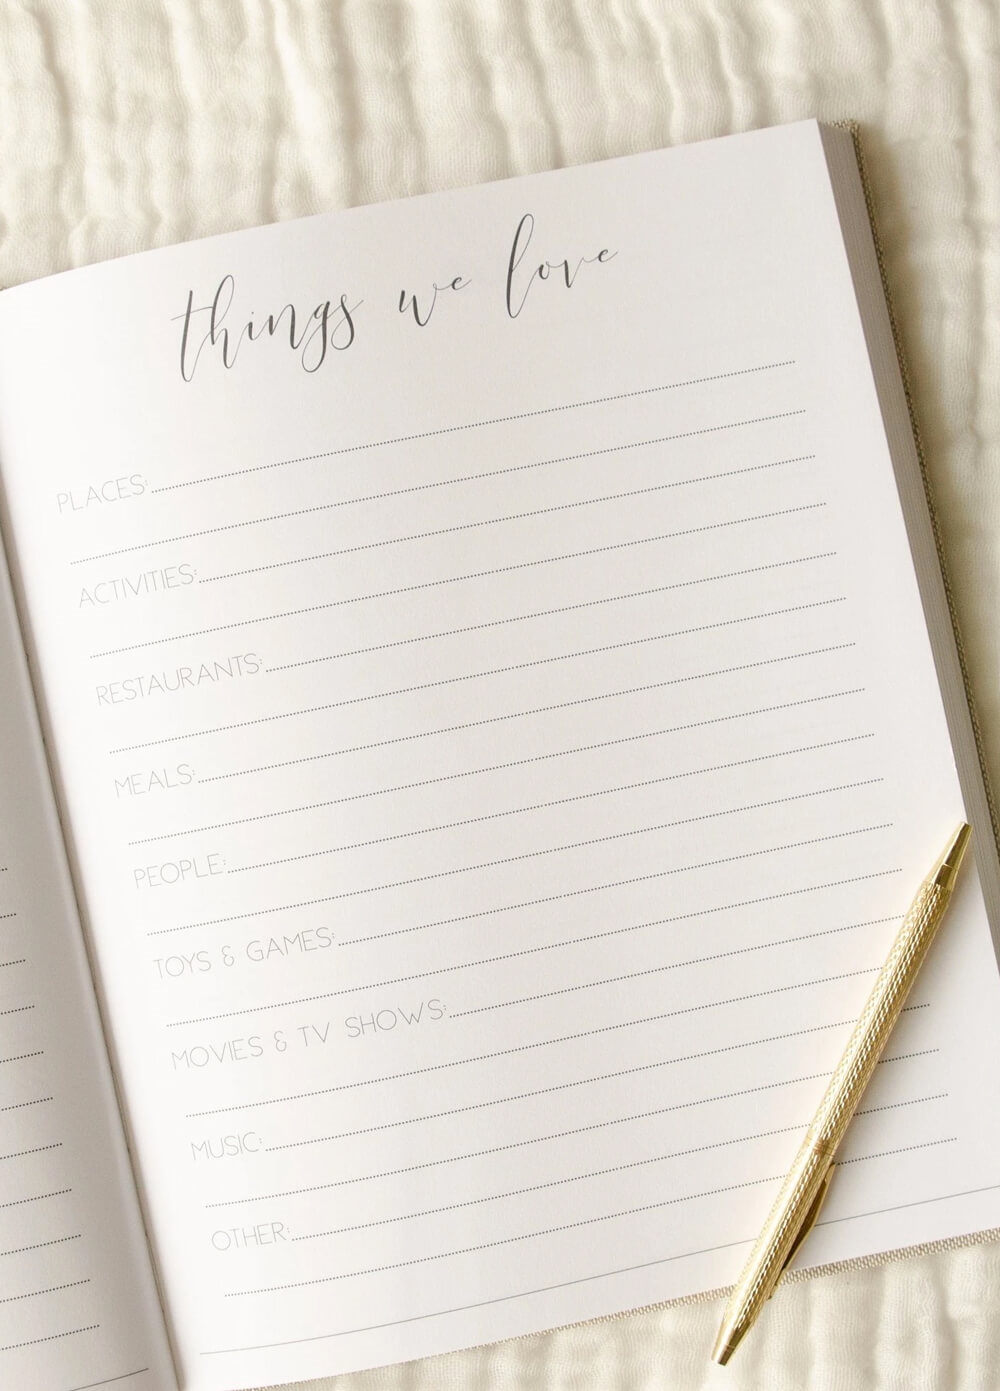 things we love
PLACES:
ACTIVITIES:
RESTAURANTS:
MEALS:
PEOPLE:
TOYS & GAMES:
MOVIES & TV SHOWS:
MUSIC:
OTHER: